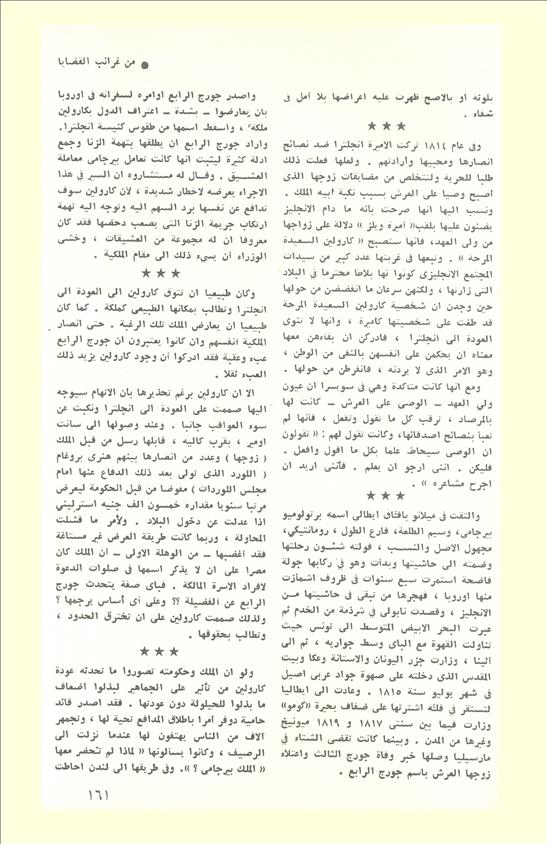 ● من غرائب القضايا
بلوثة او بالاصح ظهرت عليه اعراضها بلا أمل فى
شفاء .
★ ★ ★
وفى عام ١٨١٤ تركت الاميرة انجلترا ضد نصائح
انصارها ومحبيها وارادتهم . ولعلها فعلت ذلك
طلبا للحرية ولتتخلص من مضايقات زوجها الذى
أصبح وصيا على العرش بسبب نكبة ابيه الملك .
ونسب اليها انها صرحت بأنه ما دام الانجليز
يضنون عليها بلقب « أميرة ويلز » دلالة على زواجها
من ولى العهد، فانها ستصبح « كارولين السعيدة
المرحة » . وتبعها فى غربتها عدد كبير من سيدات
المجتمع الانجليزى كونوا لها بلاطا محترما فى البلاد
التى زارتها ، ولكنهن سرعان ما انفضضن من حولها
حين وجدن ان شخصية كارولين السعيدة المرحة
قد طغت على شخصيتها كاميرة ، وانها لا تنوى
العودة الى انجلترا ، فادركن ان بقاءهن معها
معناه ان يحكمن على انفسهن بالنفى من الوطن ،
وهو الامر الذى لا يردنه ، فانفرطن من حولها .
ومع انها كانت متأكدة وهى فى سويسرا ان عيون
ولي العهد ــ الوصى على العرش ــ كانت لها
بالمرصاد ، ترقب كل ما تقول وتفعل ، فانها لم
تعبأ بنصائح اصدقائها، وكانت تقول لهم : « تقولون
ان الوصى سيحاط علما بكل ما اقول وافعل .
فليكن . اننى ارجو ان يعلم . فأننى اريد ان
اجرح مشاعره » .
★ ★ ★
والتقت فى ميلانو بأفاق ايطالى اسمه برتولوميو
بيرجامى، وسيم الطلعة، فارع الطول ، رومانتيكى،
مجهول الاصل والنسب ، فولته شئون رحلتها
وضمته الى حاشيتها وبدأت وهو فى ركابها جولة
فاضحة استمرت سبع سنوات فى ظروف اشمأزت
منها اوروبا ، فهجرها من تبقى فى حاشيتها من
الانجليز ، وقصدت نابولى فى شرذمة من الخدم ثم
عبرت البحر الابيض المتوسط الى تونس حيث
تناولت القهوة مع الباى وسط جواريه ، ثم الى
أثينا ، وزارت جزر اليونان والاستانة وعكا وبيت
المقدس الذى دخلته على صهوة جواد عربى اصيل
فى شهر يوليو سنة ١٨١٥ . وعادت الى ايطاليا
لتستقر فى فلة اشترتها على ضفاف بحيرة «كومو»
وزارت فيما بين سنتى ١٨١٧ و ١٨١٩ ميونيخ
وغيرها من المدن . وبينما كانت تقضى الشتاء في
مارسيليا وصلها خبر وفاة جورج الثالث واعتلاء
زوجها العرش باسم جورج الرابع .
واصدر جورج الرابع اوامره لسفرائه فى اوروبا
بأن يعارضوا ــ بشدة ــ اعتراف الدول بكارولين
ملكة، واسقط اسمها من طقوس كنيسة انجلترا.
واراد جورج الرابع ان يطلقها بتهمة الزنا وجمع
ادلة كثيرة ليثبت انها كانت تعامل بيرجامى معاملة
العشيق . وقال له مستشاروه ان السير في هذا
الاجراء يعرضه لاخطار شديدة ، لأن كارولين سوف
تدافع عن نفسها برد السهم اليه وتوجه اليه تهمة
ارتكاب جريمة الزنا التى يصعب دحضها فقد كان
معروفا ان له مجموعة من العشيقات ، وخشى
الوزراء أن يسىء ذلك الى مقام الملكية .
★ ★ ★
وكان طبيعيا ان تتوق كارولين الى العودة الى
انجلترا وتطالب بمكانها الطبيعى كملكة . كما كان
طبيعيا ان يعارض الملك تلك الرغبة . حتى انصار
الملكية انفسهم وان كانوا يعتبرون ان جورج الرابع
عبء وعقبة فقد ادركوا أن وجود كارولين يزيد ذلك
العبء ثقلا .
الا ان كارولين برغم تحذيرها بأن الاتهام سيوجه
اليها صممت على العودة الى انجلترا ونكبت عن
سوء العواقب جانبا . وعند وصولها الى سانت
اومير ، بقرب كاليه ، قابلها رسل من قبل الملك
( زوجها ) وعدد من انصارها بينهم هنرى بروغام
( اللورد الذى تولى بعد ذلك الدفاع عنها امام
مجلس اللوردات ) مفوضا من قبل الحكومة ليعرض
مرتبا سنويا مقداره خمسون الف جنيه استرلينى
اذا عدلت عن دخول البلاد . ولأمر ما فشلت
المحاولة ، وربما كانت طريقة العرض غير مستساغة
فقد اغضبها ــ من الوهلة الاولى ــ أن الملك كان
مصرا على ان لا يذكر اسمها فى صلوات الدعوة
لافراد الاسرة المالكة . فبأى صفة يتحدث جورج
الرابع عن الفضيلة ؟؟ وعلى أى أساس يرجمها ؟
ولذلك صممت كارولين على ان تخترق الحدود ،
وتطالب بحقوقها .
★ ★ ★
ولو ان الملك وحكومته تصوروا ما تحدثه عودة
كارولين من تأثير على الجماهير لبذلوا اضعاف
ما بذلوا للحيلولة دون عودتها . فقد اصدر قائد
حامية دوفر امرا باطلاق المدافع تحية لها ، وتجمهر
آلاف من الناس يهتفون لها عندما نزلت الى
الرصيف ، وكانوا يسألونها « لماذا لم تحضر معها
« الملك بيرجامى ؟ ». وفى طريقها الى لندن احاطت
١٦١